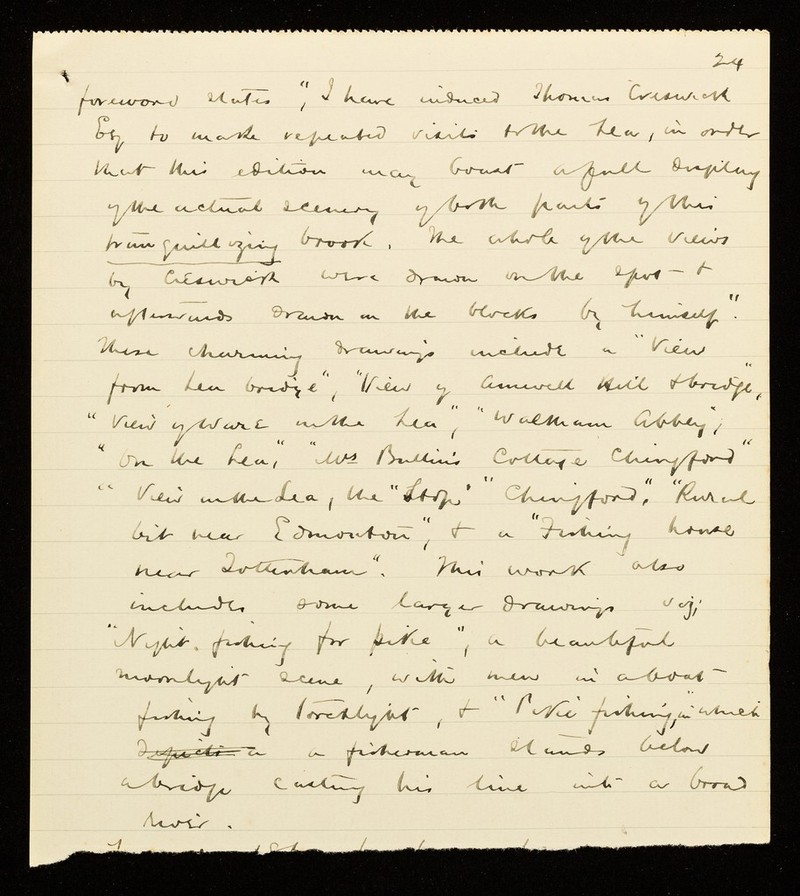 24
foreword states ", I have induced Thomas Creswick
Esq to make repeated visits to the Lea, in order
that this edition may boast a full display
of the actual scenery of both parts of this
tranquillizing brook. The whole of the views
by Creswick were drawn on the spot &
afterwards drawn on the blocks by himself".
These charming drawings include a "View
from Lea bridge", "View of Amwell Hill & bridge",
"View of Ware on the Lea", "Waltham Abbey",
"On the Lea", "Mrs Bullin's Cottage Chingford"
"View on the Lea, the "Stop" "Chingford". "Rural
bit near Edmonton", & a "Fishing house
near Tottenham". This work also
includes some larger drawings viz;
"Night fishing for pike", a beautiful
moonlight scene, with men in a boat
fishing by torchlight, & "Pike fishing", in which
depicts a a fisherman stands below
a bridge casting his line into a broad
river.